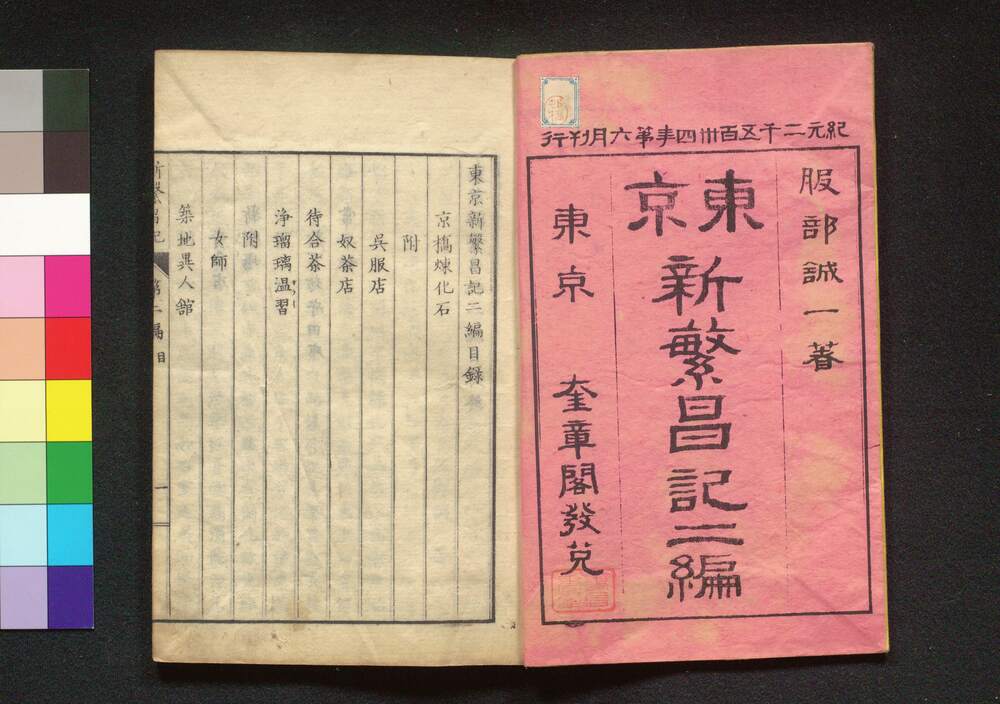 紀元二千五百卅四年第六月刊行
服部誠一著
東京
新繁昌記二編
東京 奎章閣發兌
東京新繁昌記二編目錄
京橋煉化石
附
呉服店
奴茶店
待合茶店
浄瑠璃温習
附
女師
築地異人舘
新繁昌記 第二編 目 一